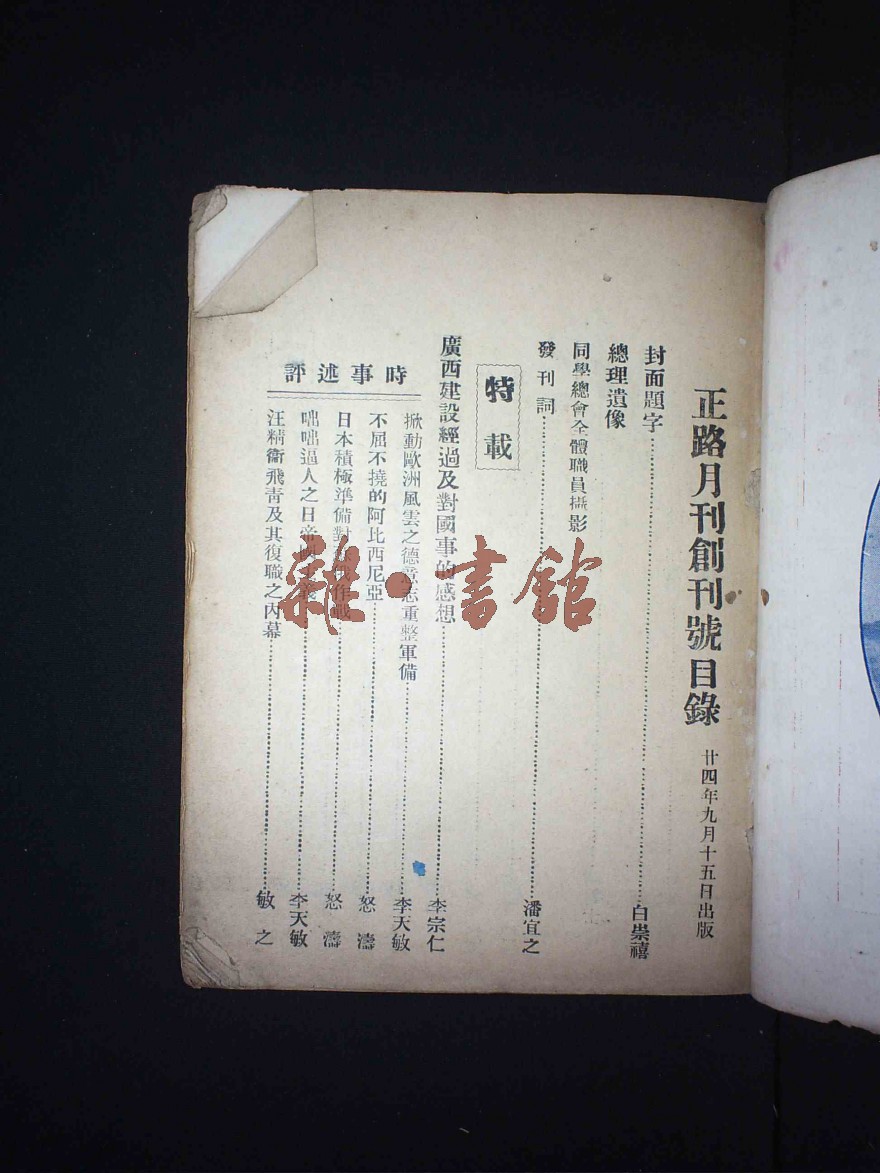 正路月刊創刊號目錄 廿四年九月十五日出版
封面題字……白崇禧
總理遺像
同學總會全體職員攝影
發刊詞……潘宜之
特載
廣西建設經過及對國事的感想……李宗仁
時事述評
掀動歐洲風雲之德意志重整軍備……李天敏
不屈不撓的阿比西尼亞……怒濤
日本積極準備對 作戰……怒濤
咄咄逼人之日帝 義……李天敏
汪精衞飛青及其復職之內幕……敏之
雜·書館